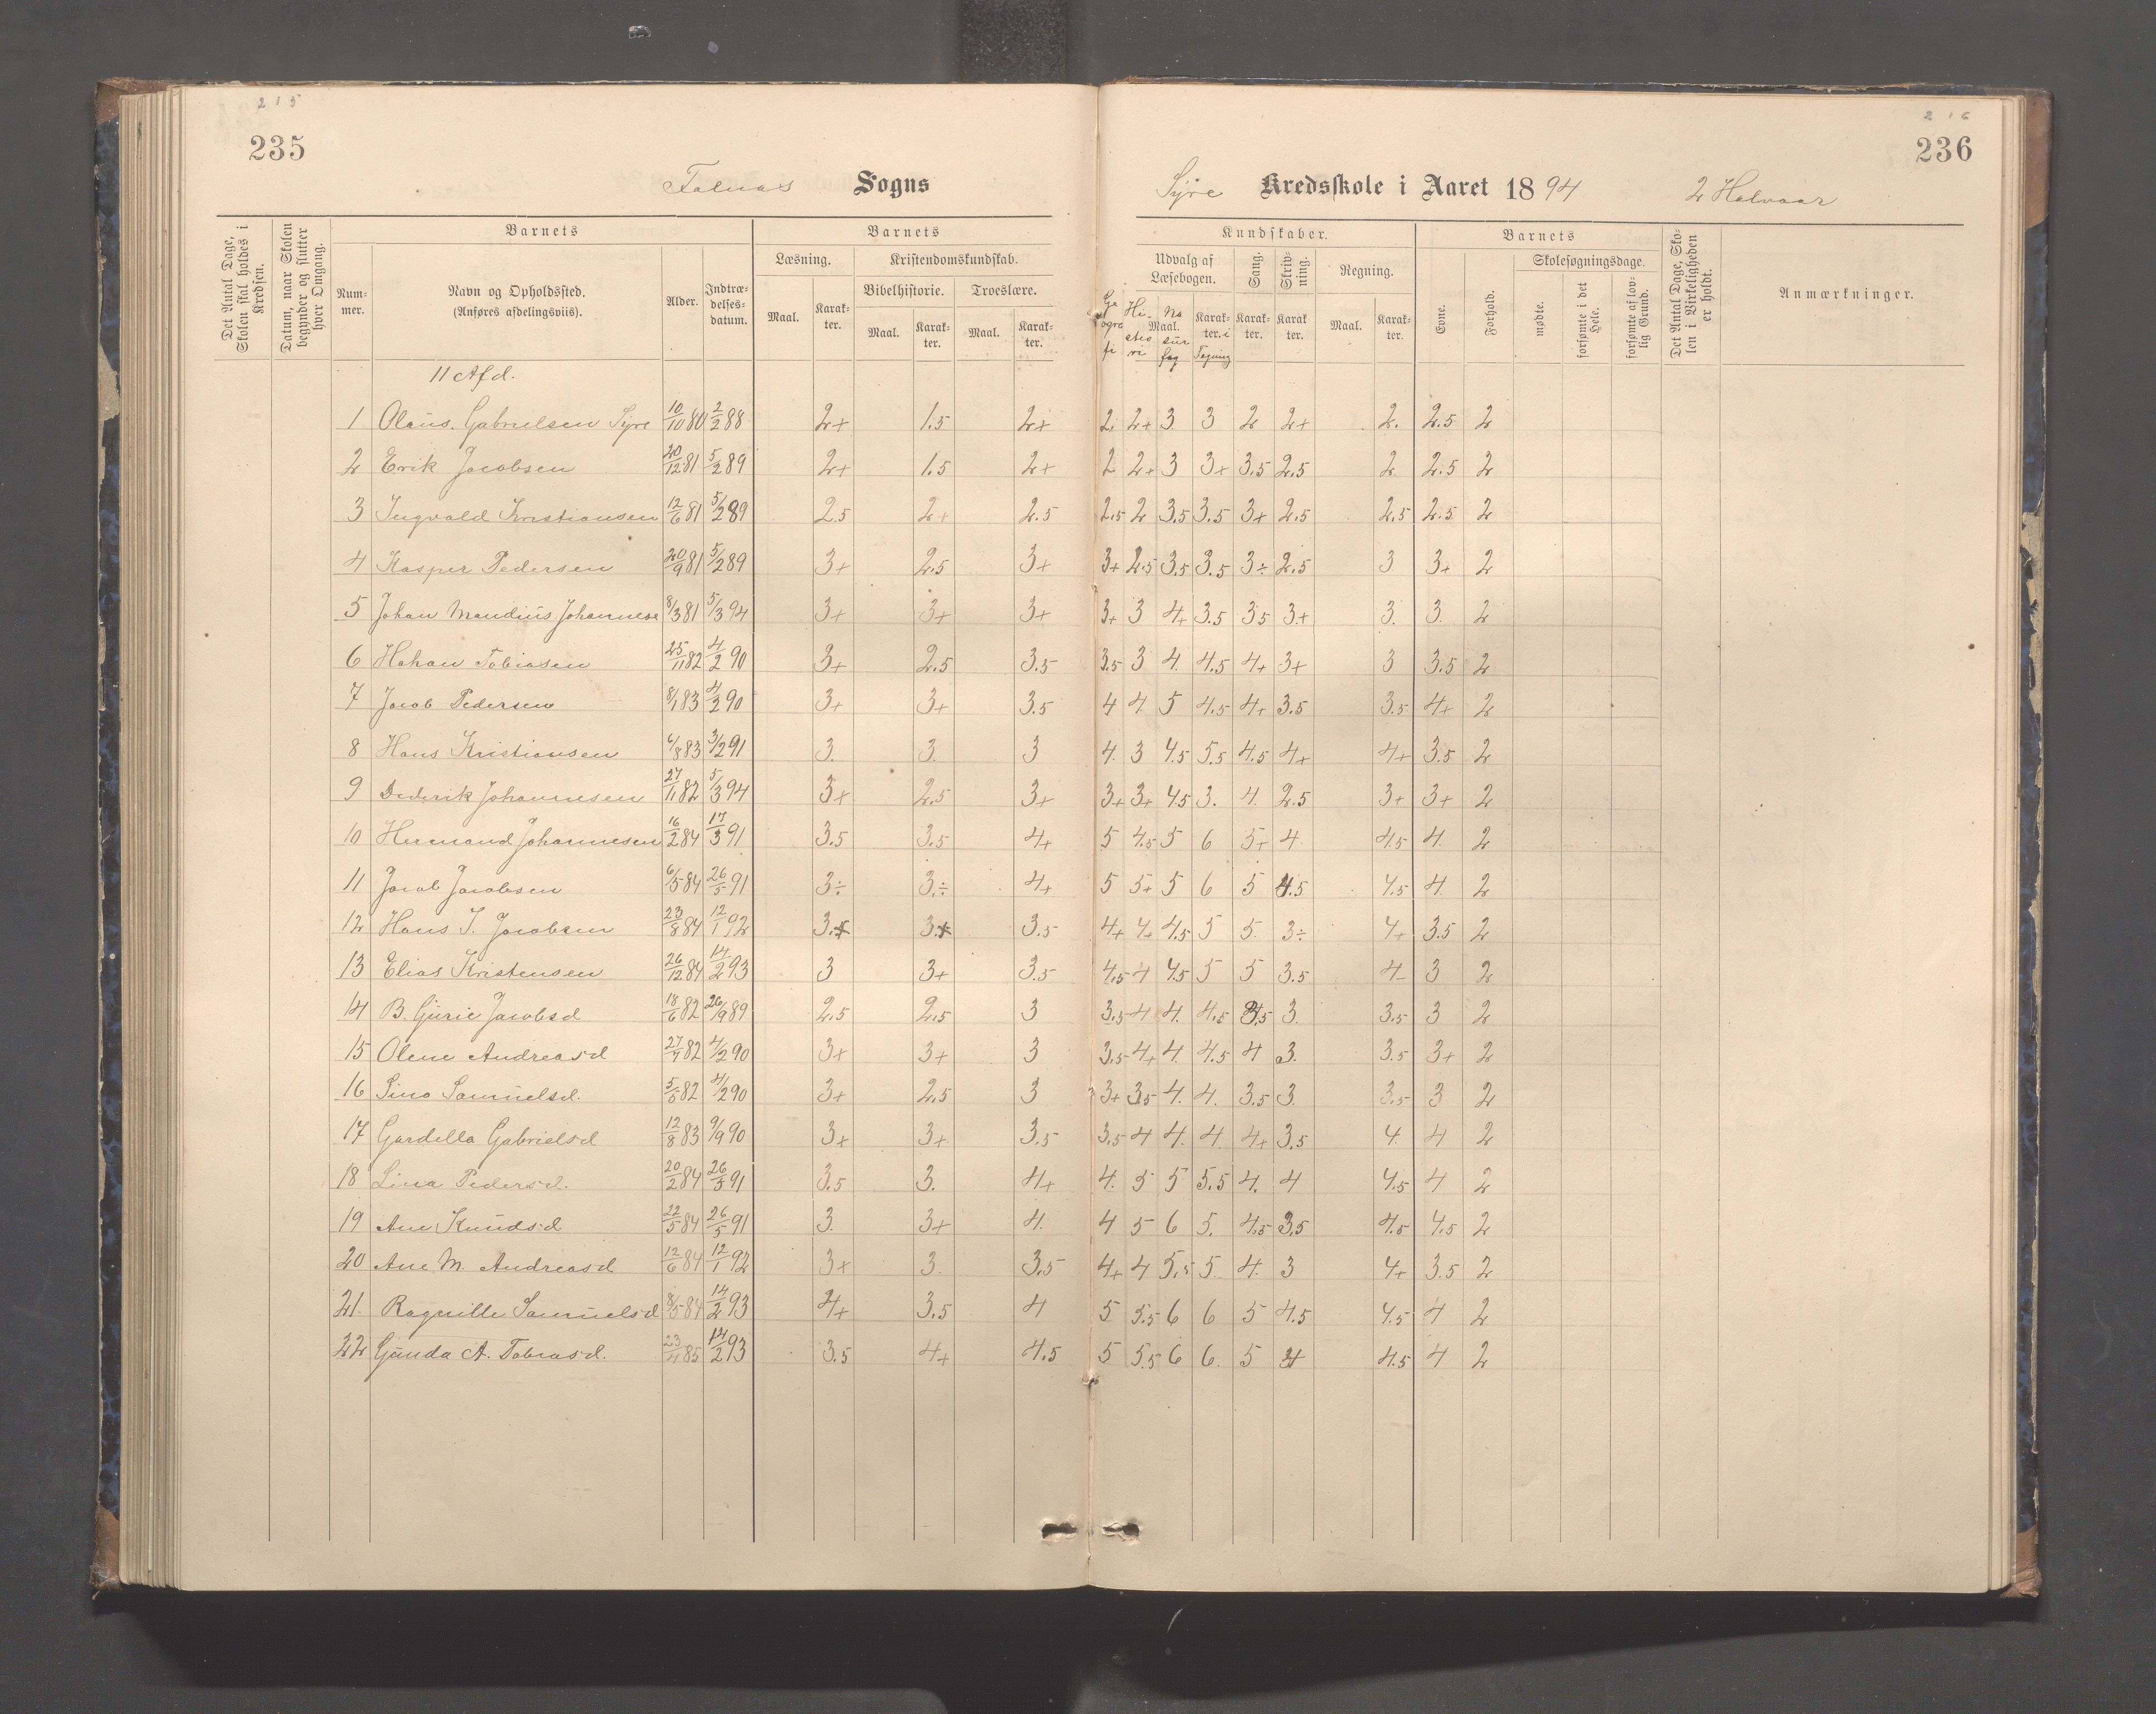 2 1 5
2 1 6
235
236
Falnæs Sogns
Syre Kredsskole i Aaret 1894 2 Halvaar
Det Antal Dage, Skolen skal holdes i Kredsen.
Datum, naar Skolen begynder og slutter hver Omgang.
Barnets
Nummer.
Navn og Opholdssted.
(Anføres afdelingsviis).
Alder.
Indtrædelsesdatum.
Barnets
Læsning.
Maal.
Karakter.
Kristendomskundskab.
Bibelhistorie.
Maal.
Karakter.
Troeslære.
Maal.
Karakter.
Kundskaber.
Udvalg af Læsebogen.
Geografi
Historie
Maal.
Naturfag
Karakter. i Tegning
Sang.
Karakter.
Skrivning.
Karakter
Regning.
Maal.
Karakter.
Barnets
Evne.
Forhold.
Skolesøgningsdage.
mødte.
forsømte i det Hele.
forsømte af lovlig Grund.
Det Antal Dage, Skolen i Virkeligheden er holdt.
Anmærkninger.
11 Afd.
1 Olaus. Gabrielsen Syre 10/10 80 2/2 88 2+ 1.5 2+ 2. 2+ 3 3 2 2+ 2. 2.5 2
2 Erik Jacobsen 20/12 81 5/2 89 2+ 1.5 2+ 2 2+ 3 3+ 3.5 2.5 2 2.5 2
3 Ingvald Kristiansen 12/6 81 5/2 89 2.5 2+ 2.5 2.5 2 3.5 3.5 3+ 2.5 2.5 2.5 2
4 Kasper Pedersen 20/9 81 5/2 89 3+ 2.5 3+ 3+ 2.5 3.5 3.5 3÷ 2.5 3 3+ 2
5 Johan Maudius Johannese 8/3 81 5/3 94 3+ 3+ 3+ 3+ 3 4+ 3.5 3.5 3+ 3. 3. 2
6 Hahan Tobiasen 25/11 82 4/2 90 3+ 2.5 3.5 3.5 3 4. 4.5 4+ 3+ 3 3.5 2
7 Jacob Pedersen 8/1 83 4/2 90 3+ 3+ 3.5 4 4. 5 4.5 4+ 3.5 3.5 4+ 2
8 Hans Kristiansen 6/8 83 3/2 91 3. 3. 3 4. 3 4.5 5.5 4.5 4+ 4+ 3.5 2
9 Dederik Johannesen 27/11 82 5/3 94 3+ 2.5 3+ 3+ 3+ 4.5 3. 4. 2.5 3+ 3+ 2
10 Hermand Johannesen 16/2 84 17/3 91 3.5 3.5 4+ 5 4.5 5 6 5+ 4 4.5 4. 2
11 Jacob Jacobsen 6/5 84 26/5 91 3÷ 3.÷ 4+ 5 5+ 5 6 5 4.5 4.5 4. 2
12 Hans J. Jacobsen 23/8 84 12/1 92 3.+ 3.+ 3.5 4+ 4+ 4.5 5 5. 3÷ 4+ 3.5 2
13 Elias Kristensen 26/12 84 14/2 93 3 3+ 3.5 4.5 4 4.5 5 5 3.5 4- 3 2
14 B. Gurie Jacobsd 18/6 82 26/9 89 2.5 2.5 3 3.5 4 4. 4.5 3.5 3. 3.5 3 2
15 Olene Andreasd 27/7 82 4/2 90 3+ 3+ 3 3.5 4+ 4. 4.5 4 3. 3.5 3+ 2
16 Sina Samuelsd. 5/5 82 4/2 90 3+ 2.5 3 3+ 3.5 4. 4. 3.5 3. 3.5 3 2
17 Gardella Gabrielsd 12/8 83 9/9 90 3+ 3+ 3.5 3.5 4 4. 4. 4+ 3.5 4. 4 2
18 Lina Pedersd. 20/2 84 26/5 91 3.5 3. 4+ 4. 5 5 5.5 4. 4 4.5 4 2
19 Ane Knudsd 22/5 84 26/5 91 3. 3+ 4. 4 5 6 5. 4.5 3.5 4.5 4.5 2
20 Ane M. Andreasd 12/6 84 12/1 92 3+ 3. 3.5 4+ 4 5.5 5. 4. 3 4+ 3.5 2
21. Ragnille Samuelsd 8/5 84 14/2 93 4+ 3.5 4 5 5.5 6 6 5 4.5 4.5 4 2
22 Gunda A. Tobiasd. 23/4 85 14/2 93 3.5 4+ 4.5 5 5.5 6 6. 5 4 4.5 4 2